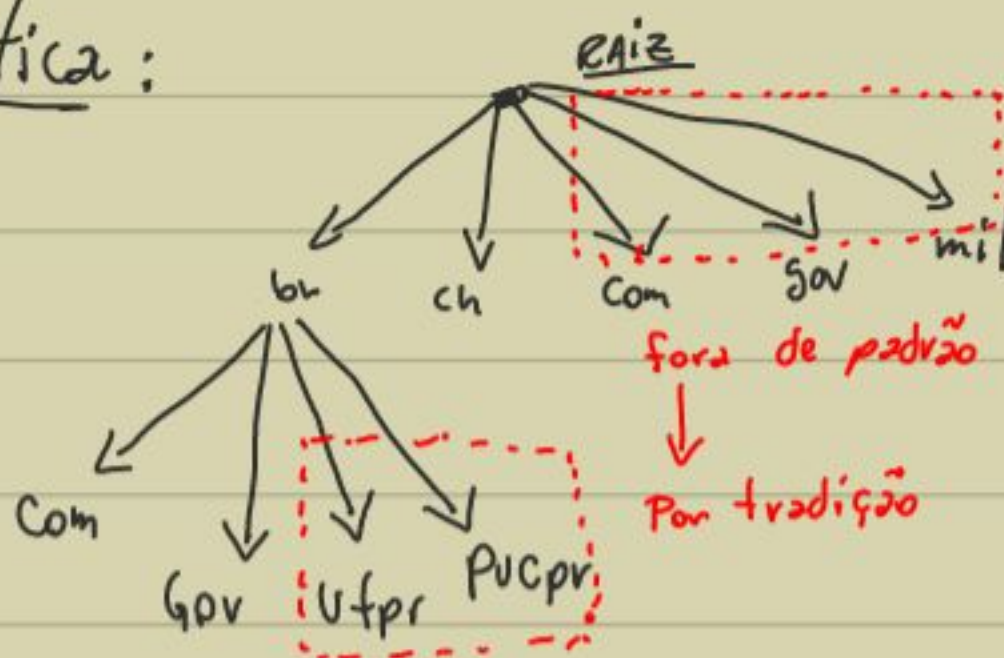 tica:
RAiZ
br
ch
Com
gov
mil
fora de padrão
Por tradição
Com
Gov
Ufpr
PUCpr